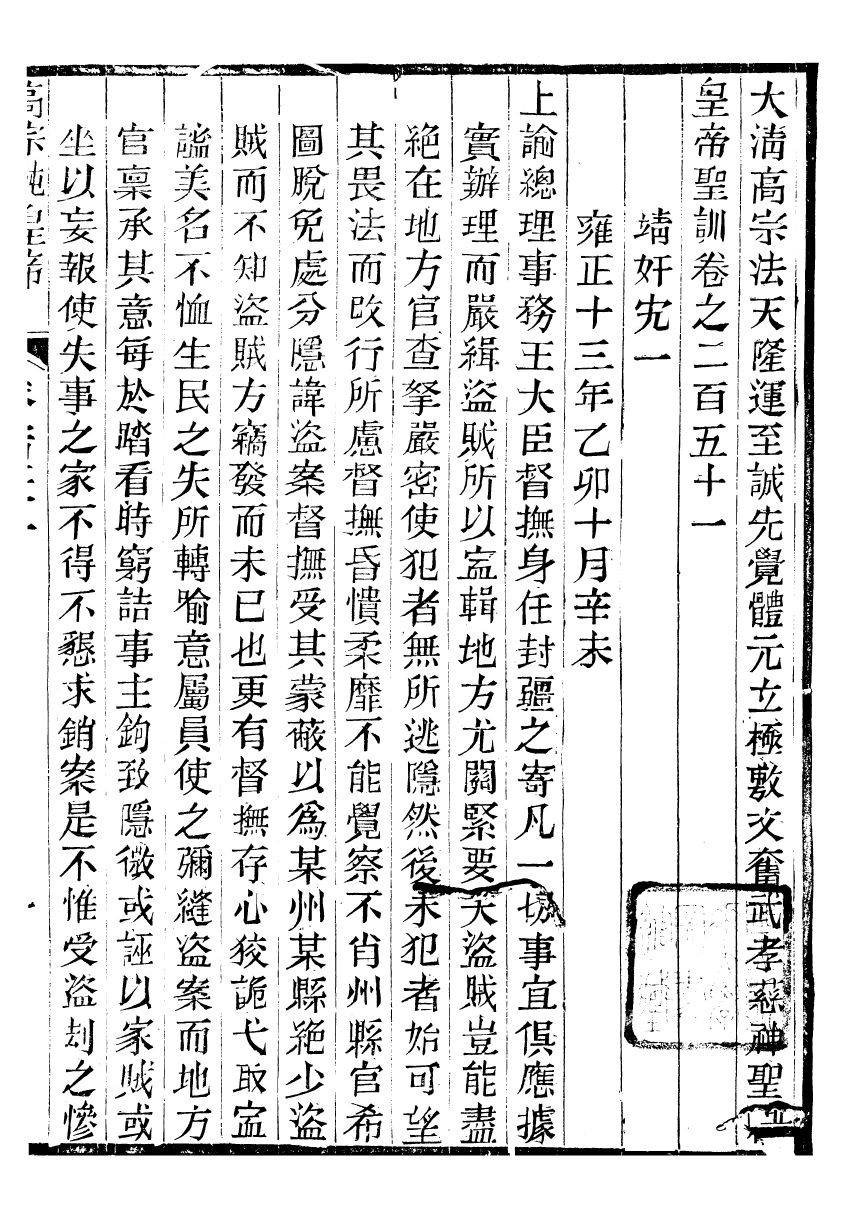 大清高宗法天隆運至誠先覺體元立極敷文奮武孝慈神聖
皇帝聖訓卷之二百五十一
靖奸宄一
雍正十三年乙卯十月辛未
上諭總理事務王大臣督撫身任封疆之寄凡一切事宜俱應據
實辦理而嚴緝盜賊所以寍輯地方尤關緊要夫盜賊豈能盡
絕在地方官查拏嚴密使犯者無所逃隱然後未犯者始可望
其畏法而改行所慮督撫昏憒柔靡不能覺察不肖州縣官希
圖脫免處分隱諱盜案督撫受其蒙蔽以爲某州某縣絕少盜
賊而不知盜賊方竊發而未已也更有督撫存心狡詭弋取寍
謐美名不恤生民之失所轉喻意屬員使之彌縫盜案而地方
官稟承其意每於踏看時窮詰事主鉤致隱微或誣以家賊或
坐以妄報使失事之家不得不懇求銷案是不惟受盜刦之慘
高宗純皇帝